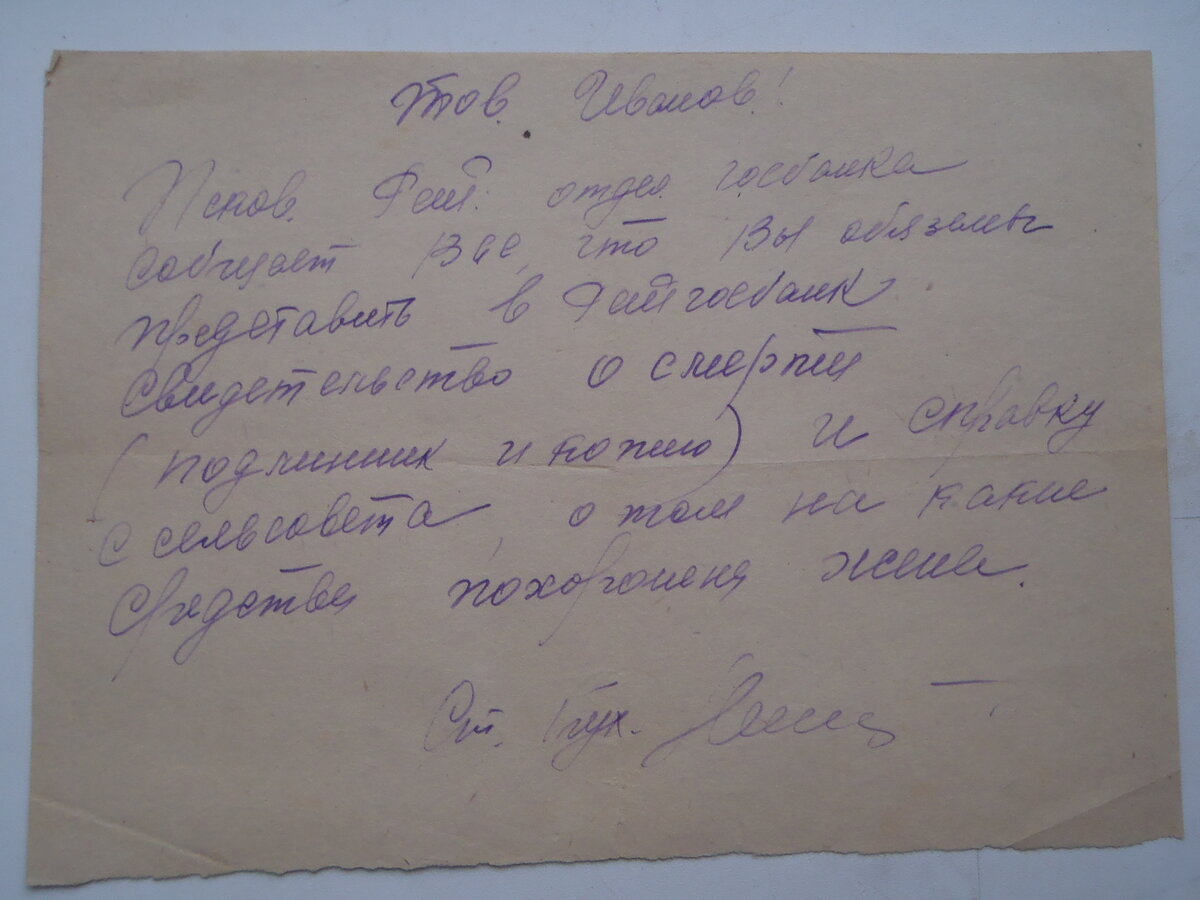 Тов. Иванов!
Псков. Рай. отдел. госбанка
сообщает Вас, что Вы обязаны
представить в Райгосбанк
свидетельство о смерти
(подлинник и копию) и справку
с сельсовета, о том на какие
средства похоронена жена.
Ст. бух.